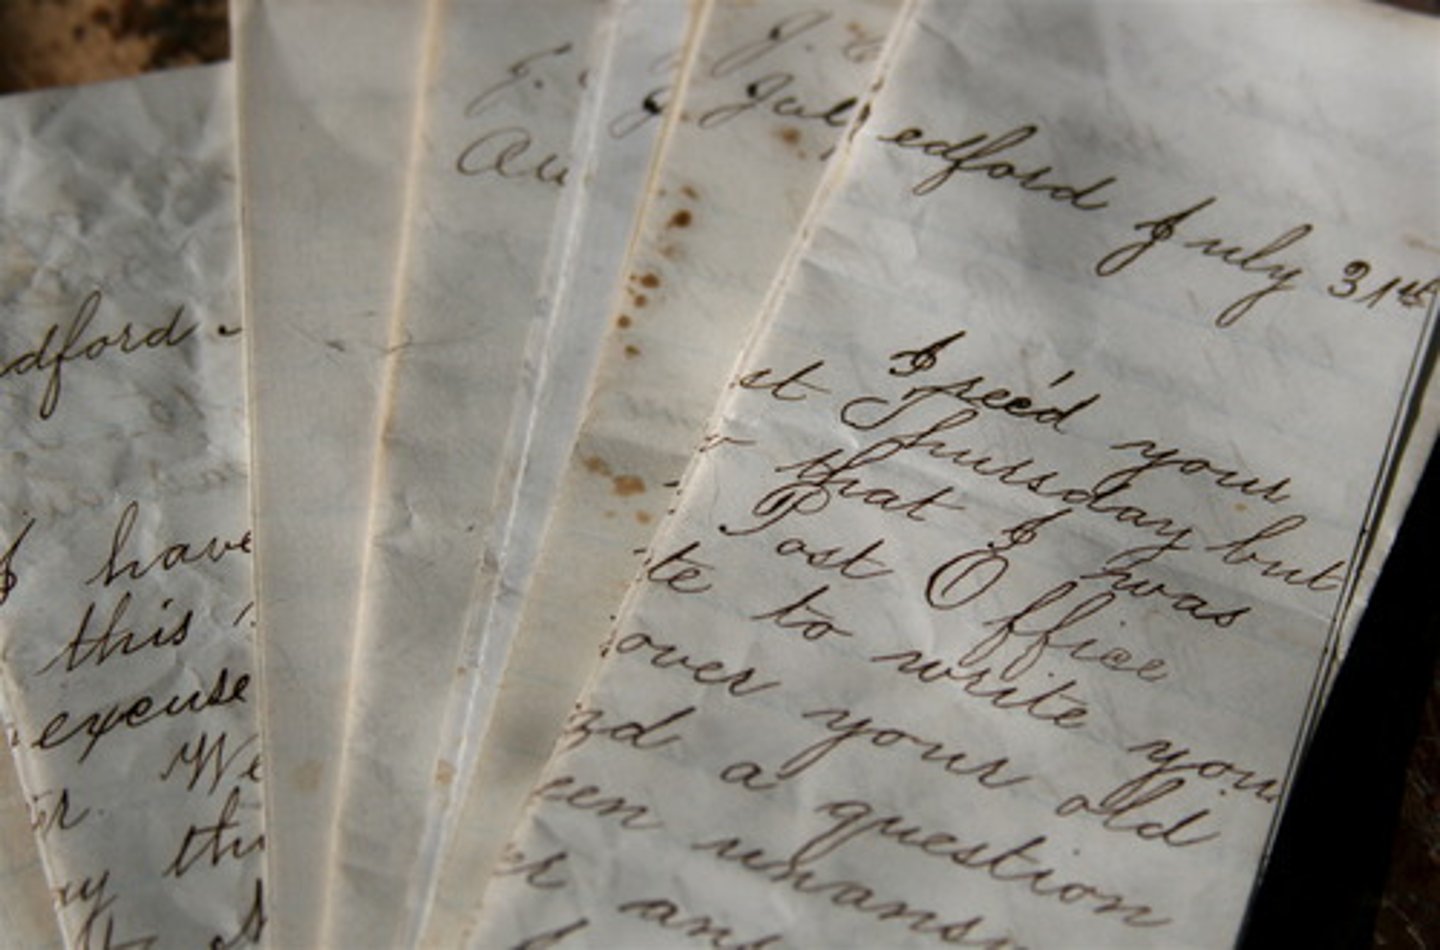 dford
I have
this
excuse
We
Au
J.
Jul
edford July 31st
I rec'd your
st Thursday but
that I was
Post Office
te to write you
over your old
a question
een unans
er ans